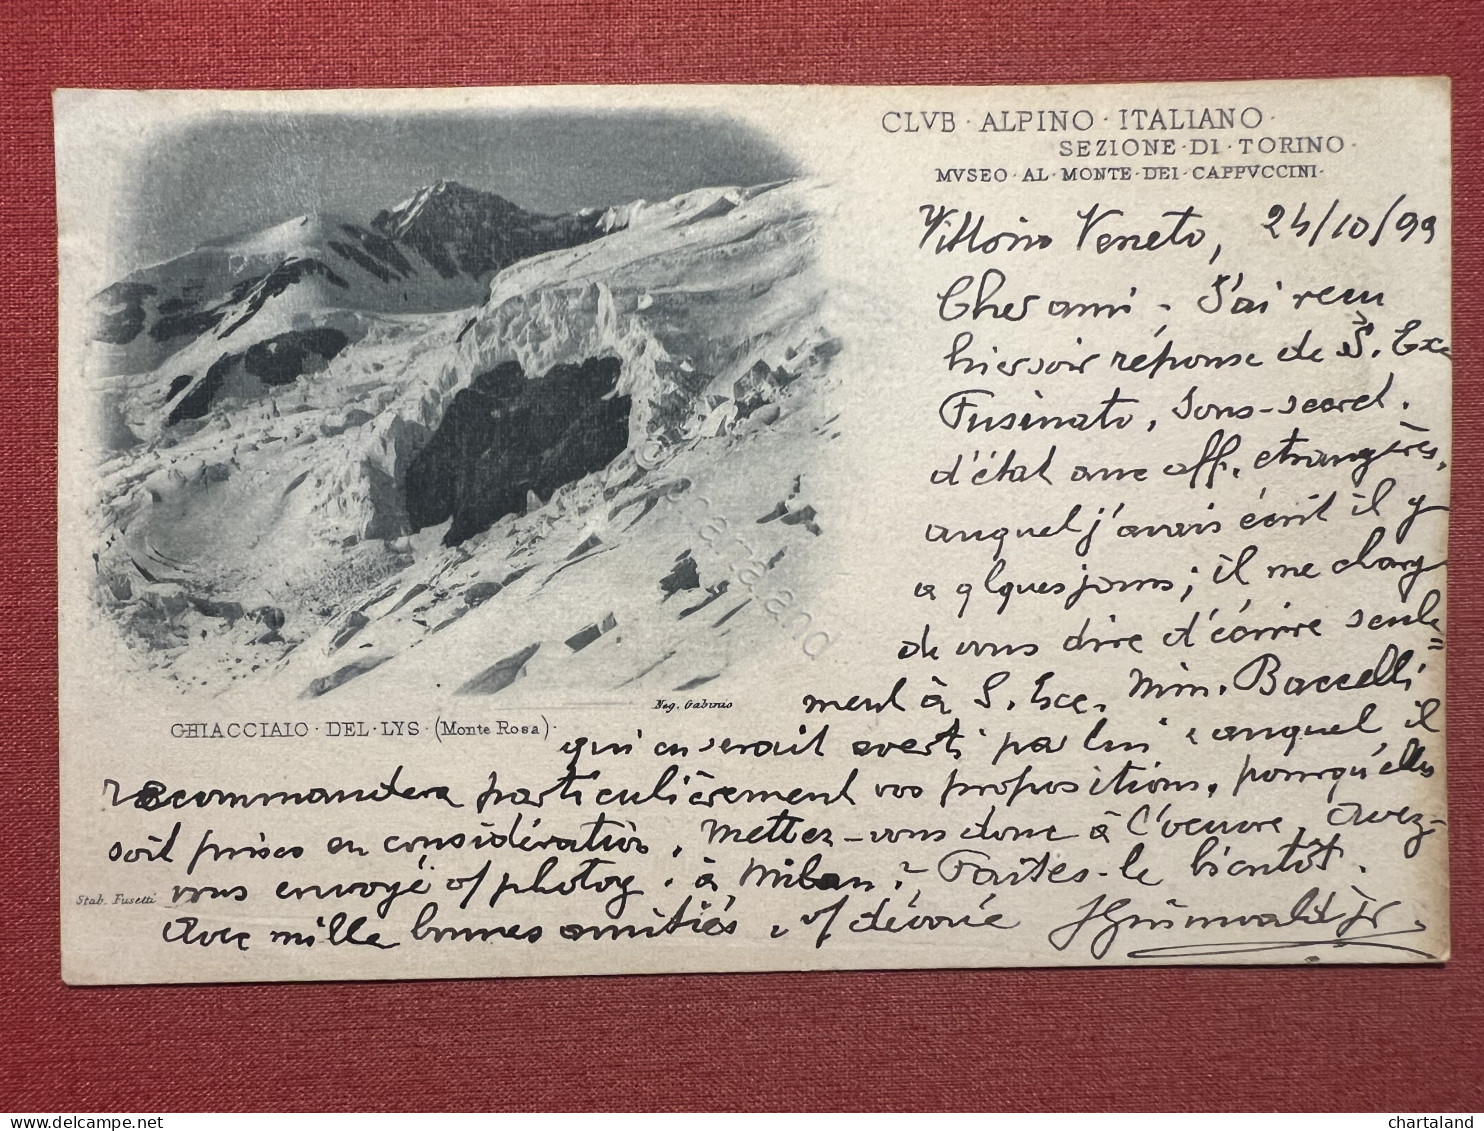 CLVB · ALPINO · ITALIANO ·
SEZIONE · DI · TORINO ·
MVSEO · AL · MONTE · DEI · CAPPVCCINI ·
Vittorio Veneto, 24/10/99
Cher ami - J'ai reçu
hiersoir réponse de S. Exc
Fusinato, Sous-secret.
d'état aux aff. étrangères,
auquel j'avais écrit il y
a qlques jours ; il me charg
de vous dire d'écrire seule=
ment à S. Exc. Min. Baccelli
qui en serait averti par lui, auquel il
recommandera particulièrement vos propositions, pourqu'elles
soit prises en considération. Mettez-vous donc à l'oeuvre. Avez-
vous envoyé v/ photog. à Milan? Faites-le bientôt.
Avec mille bonnes amitiés, v/ dévoué JGrünwald jr.
Neg. Gabinio
GHIACCIAIO · DEL · LYS · (Monte Rosa) ·
Stab. Fusetti
chartaland
chartaland